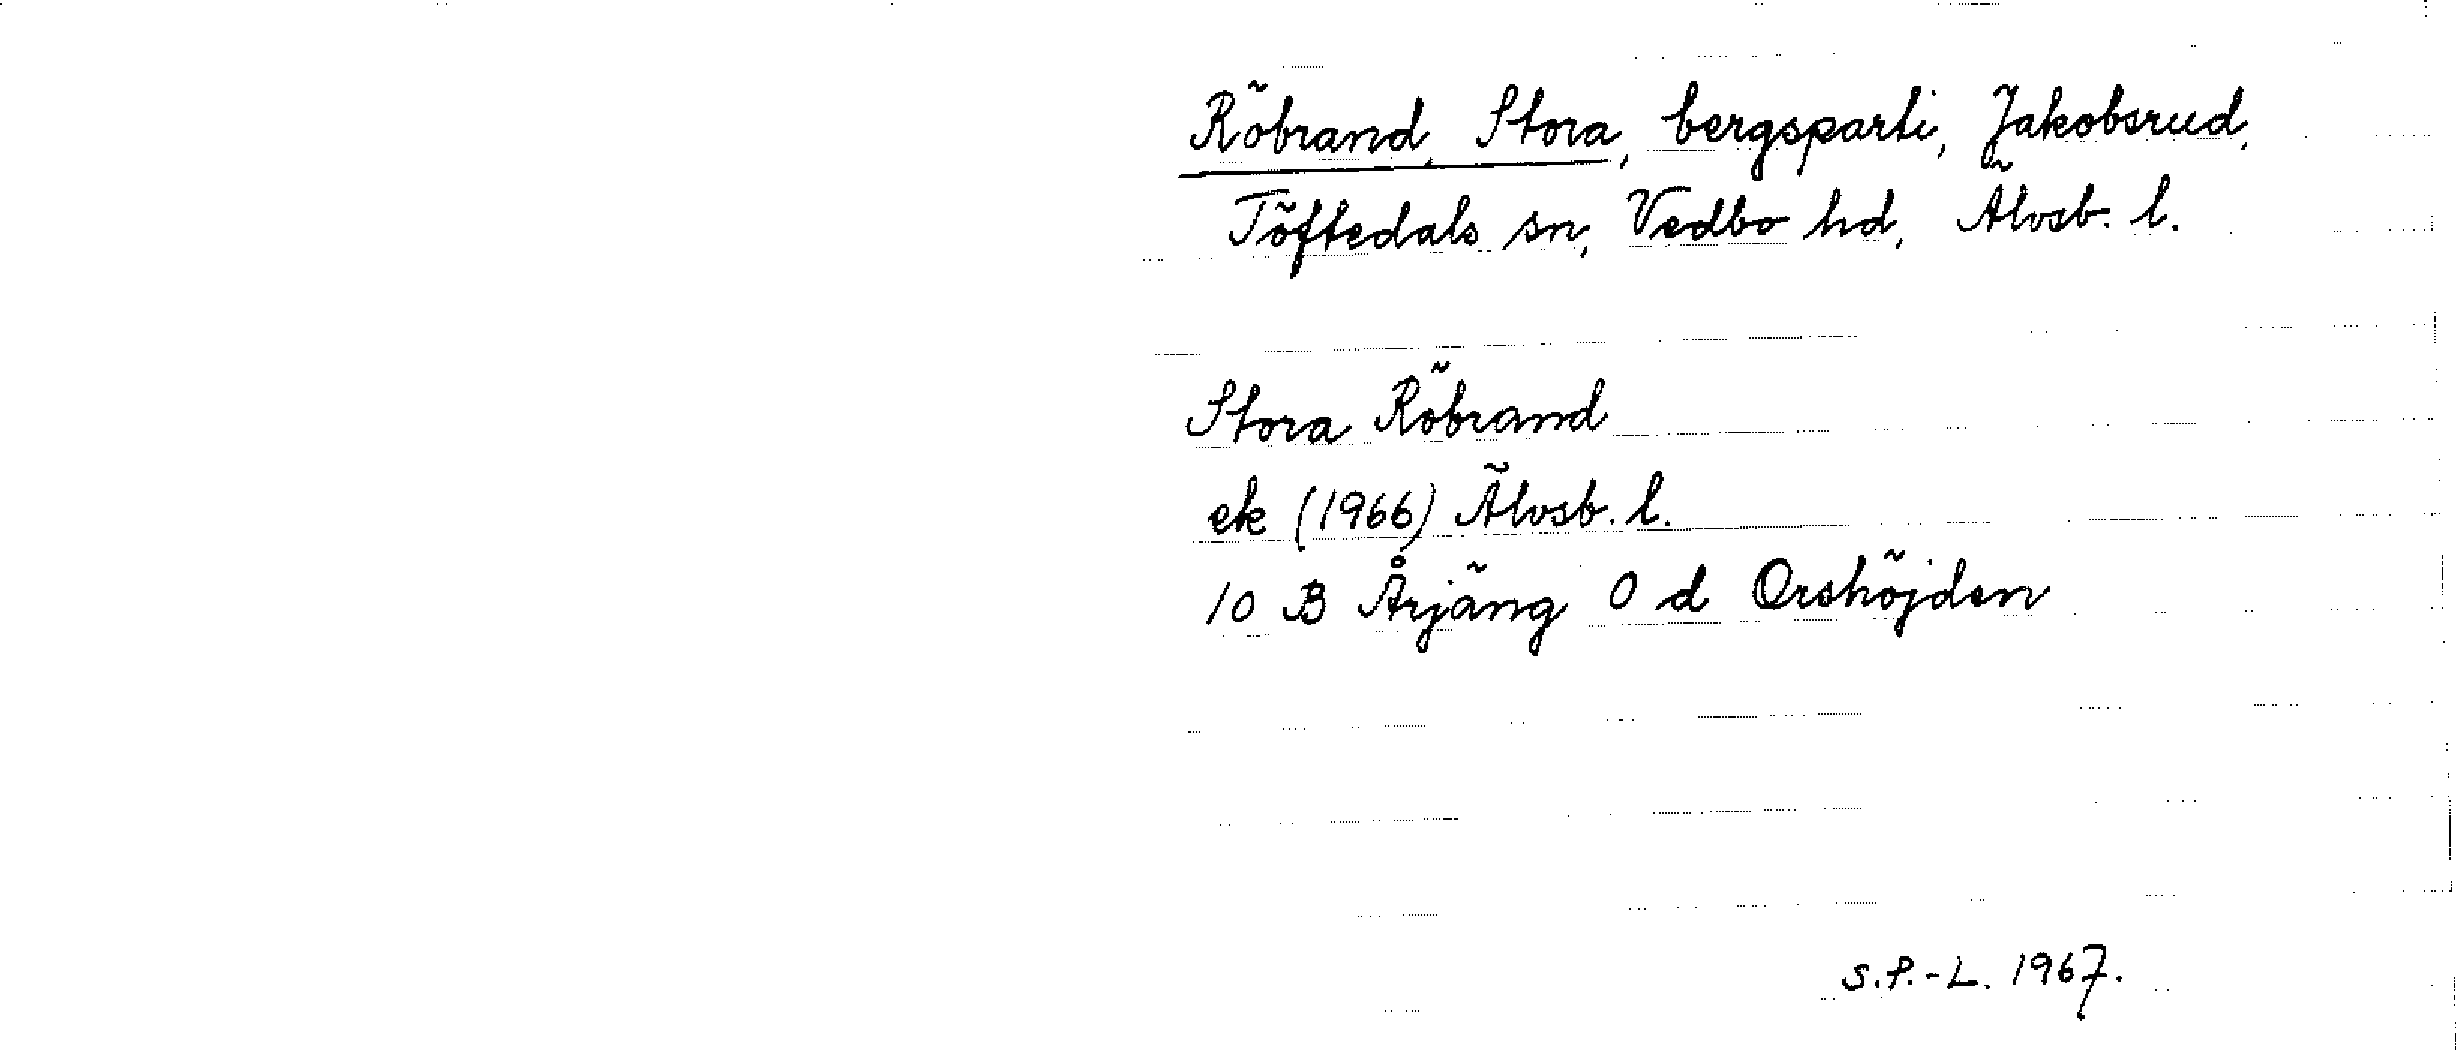 Röbrand, Stora, bergsparti, Jakobsrud,
Töftedals sn, Vedbo hd, Älvsb. l.
Stora Röbrand
ek (1966) Älvsb. l.
10 B Årjäng 0 d Orshöjden
S.P.-L. 1967.